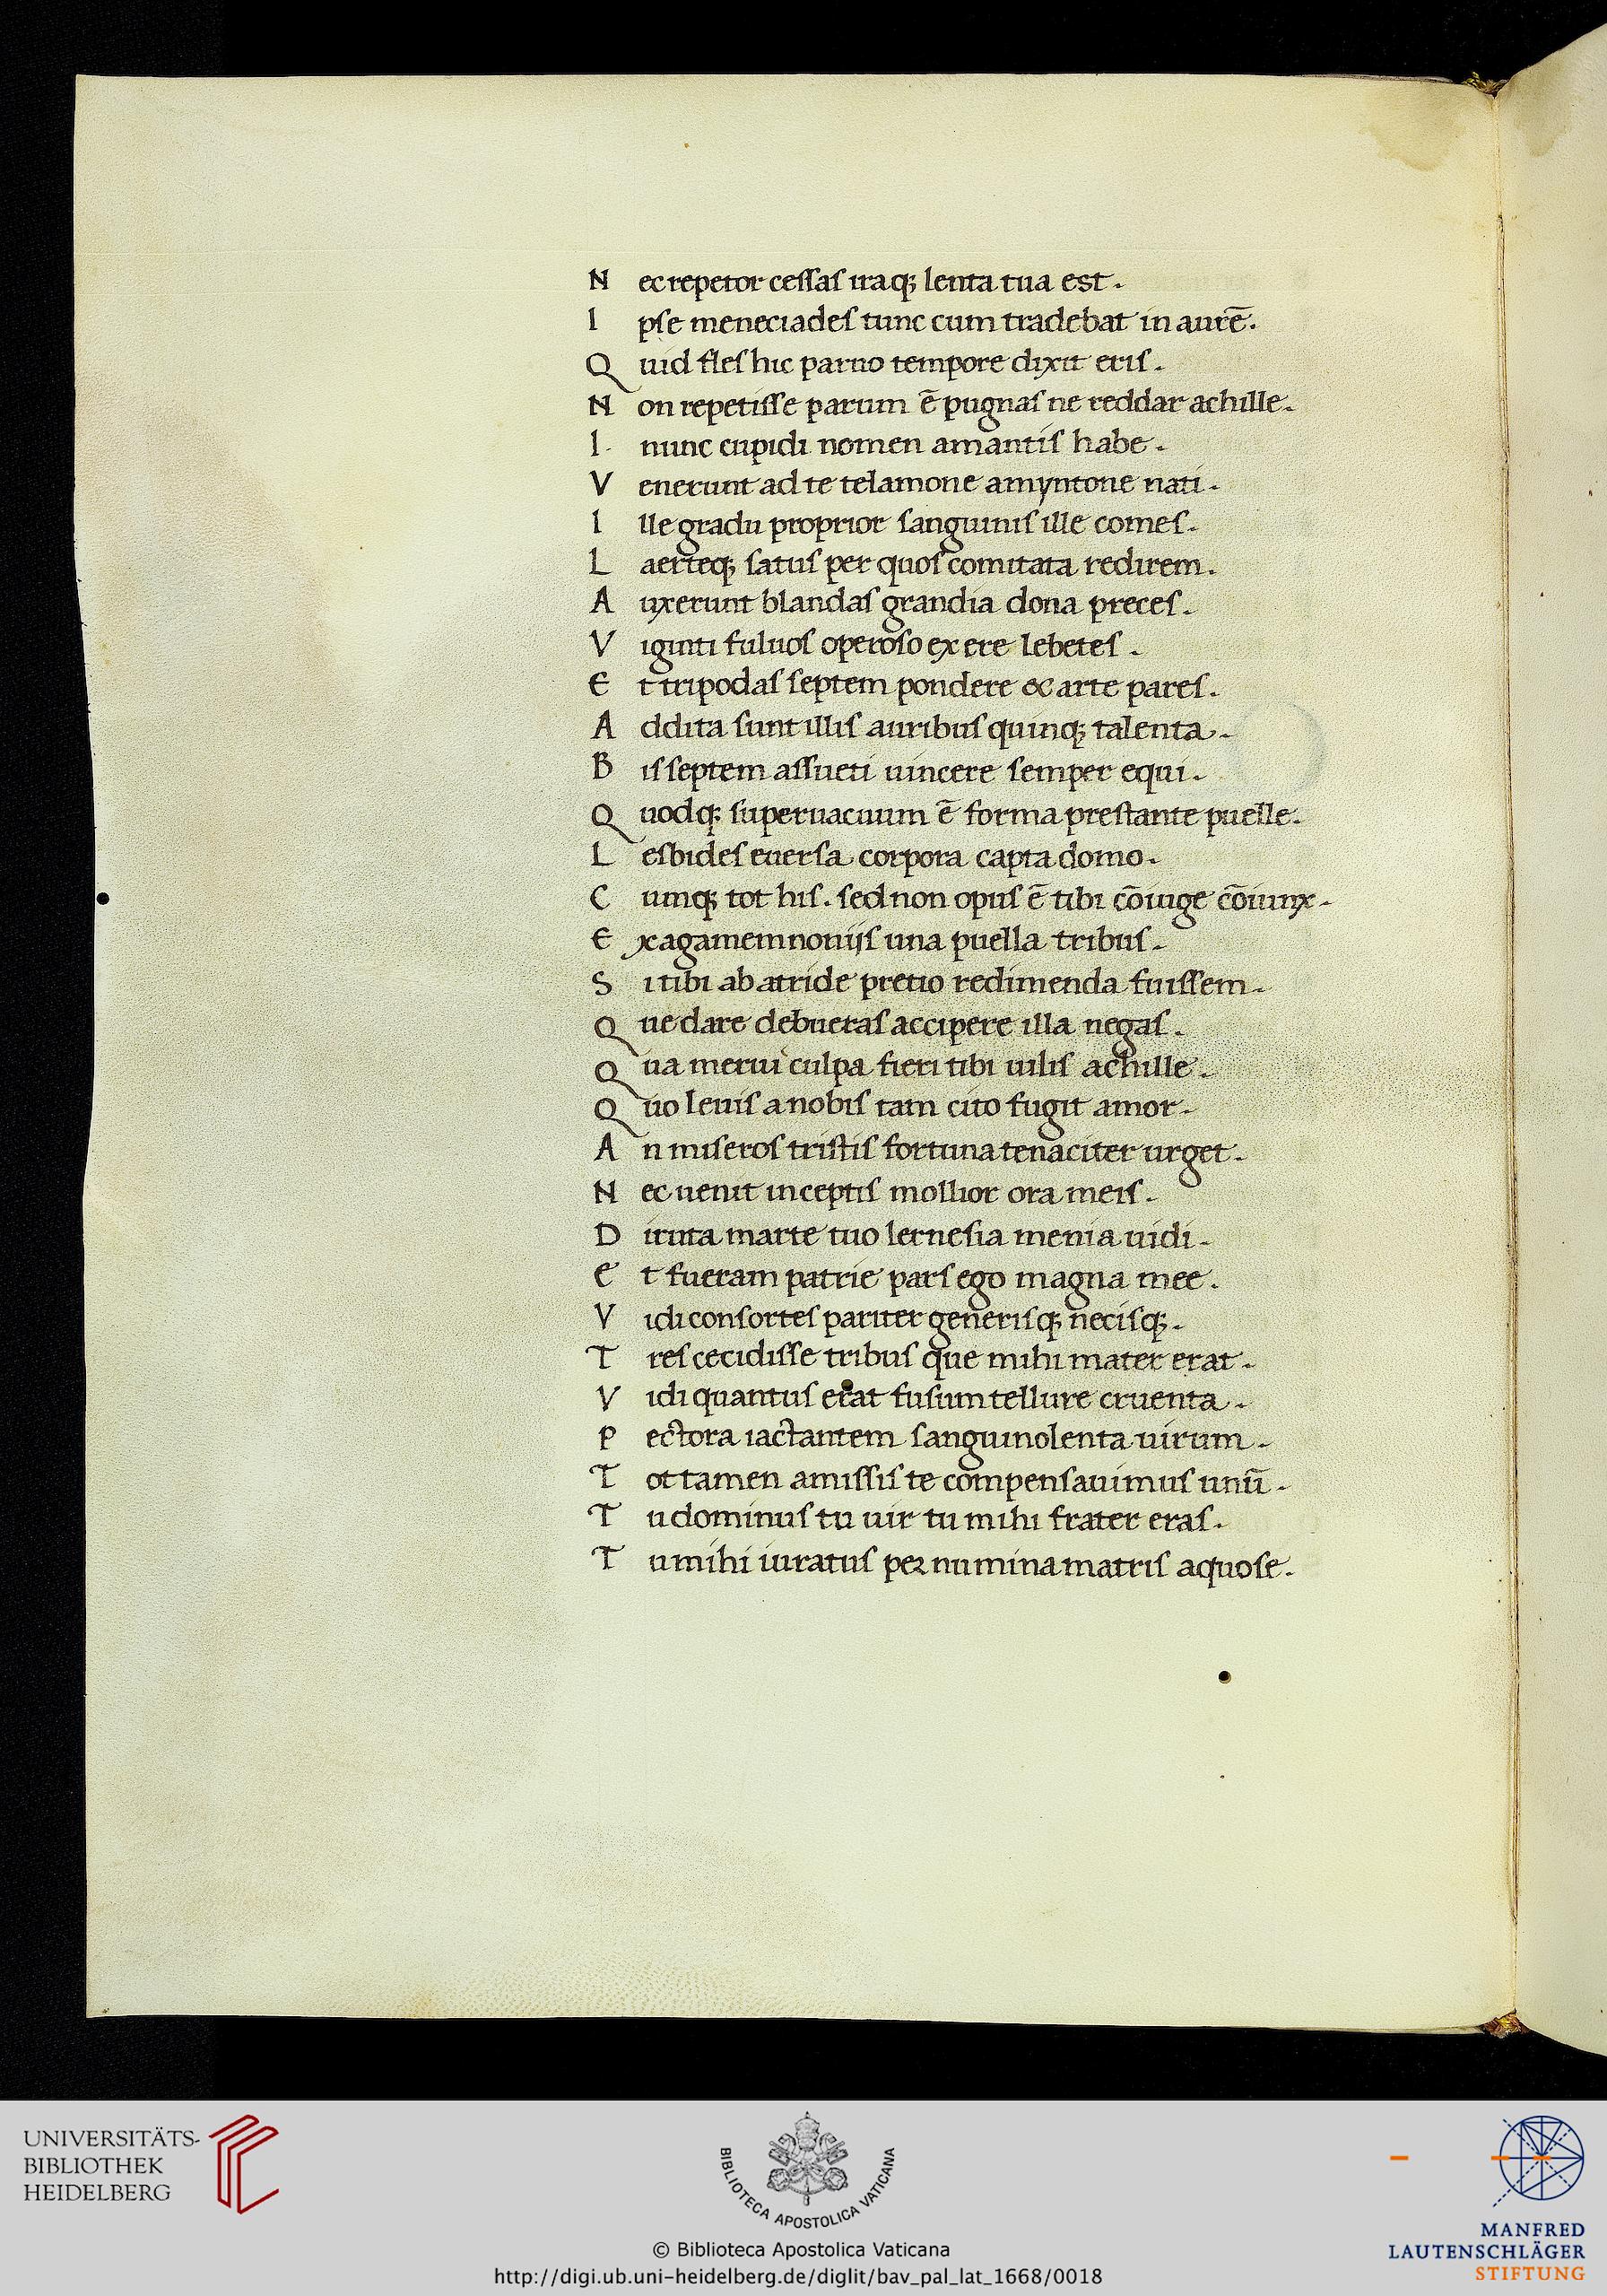 N ec repetor cessas iraq; lenta tua est.
I pse meneciades tunc cum tradebat in aurē.
Q uid fles hic paruo tempore dixit eris.
N on repetisse parum ē pugnas ne reddar achille.
I. nunc cupidi nomen amantis habe.
V enerunt ad te telamone amyntone nati.
I lle gradu proprior sanguinis ille comes.
L aerteq; satus per quos comitata redirem.
A uxerunt blandas grandia dona preces.
V iginti fuluos operoso ex ere lebetes.
E t tripodas septem pondere & arte pares.
A ddita sunt illis auribus quinq; talenta.
B is septem assueti uincere semper equi.
Q uodq; superuacuum ē forma prestante puelle.
L esbides euersa corpora capta domo.
C umq; tot his. sed non opus ē tibi cōiuge cōiunx.
E x agamemnoniis una puella tribus.
S i tibi ab atride pretio redimenda fuissem.
Q ue dare debueras accipere illa negas.
Q ua merui culpa fieri tibi uilis achille.
Q uo leuis a nobis tam cito fugit amor.
A n miseros tristis fortuna tenaciter urget.
N ec uenit inceptis mollior ora meis.
D iruta marte tuo lernesia menia uidi.
E t fueram patrie pars ego magna mee.
V idi consortes pariter generisq; necisq;.
T res cecidisse tribus que mihi mater erat.
V idi quantus erat fusum tellure cruenta.
P ectora iactantem sanguinolenta uirum.
T ot tamen amissis te compensauimus unū.
T u dominus tu uir tu mihi frater eras.
T u mihi iuratus per numina matris aquose.
UNIVERSITÄTS-
BIBLIOTHEK
HEIDELBERG
BIBLIOTECA APOSTOLICA VATICANA
© Biblioteca Apostolica Vaticana
http://digi.ub.uni-heidelberg.de/diglit/bav_pal_lat_1668/0018
MANFRED
LAUTENSCHLÄGER
STIFTUNG